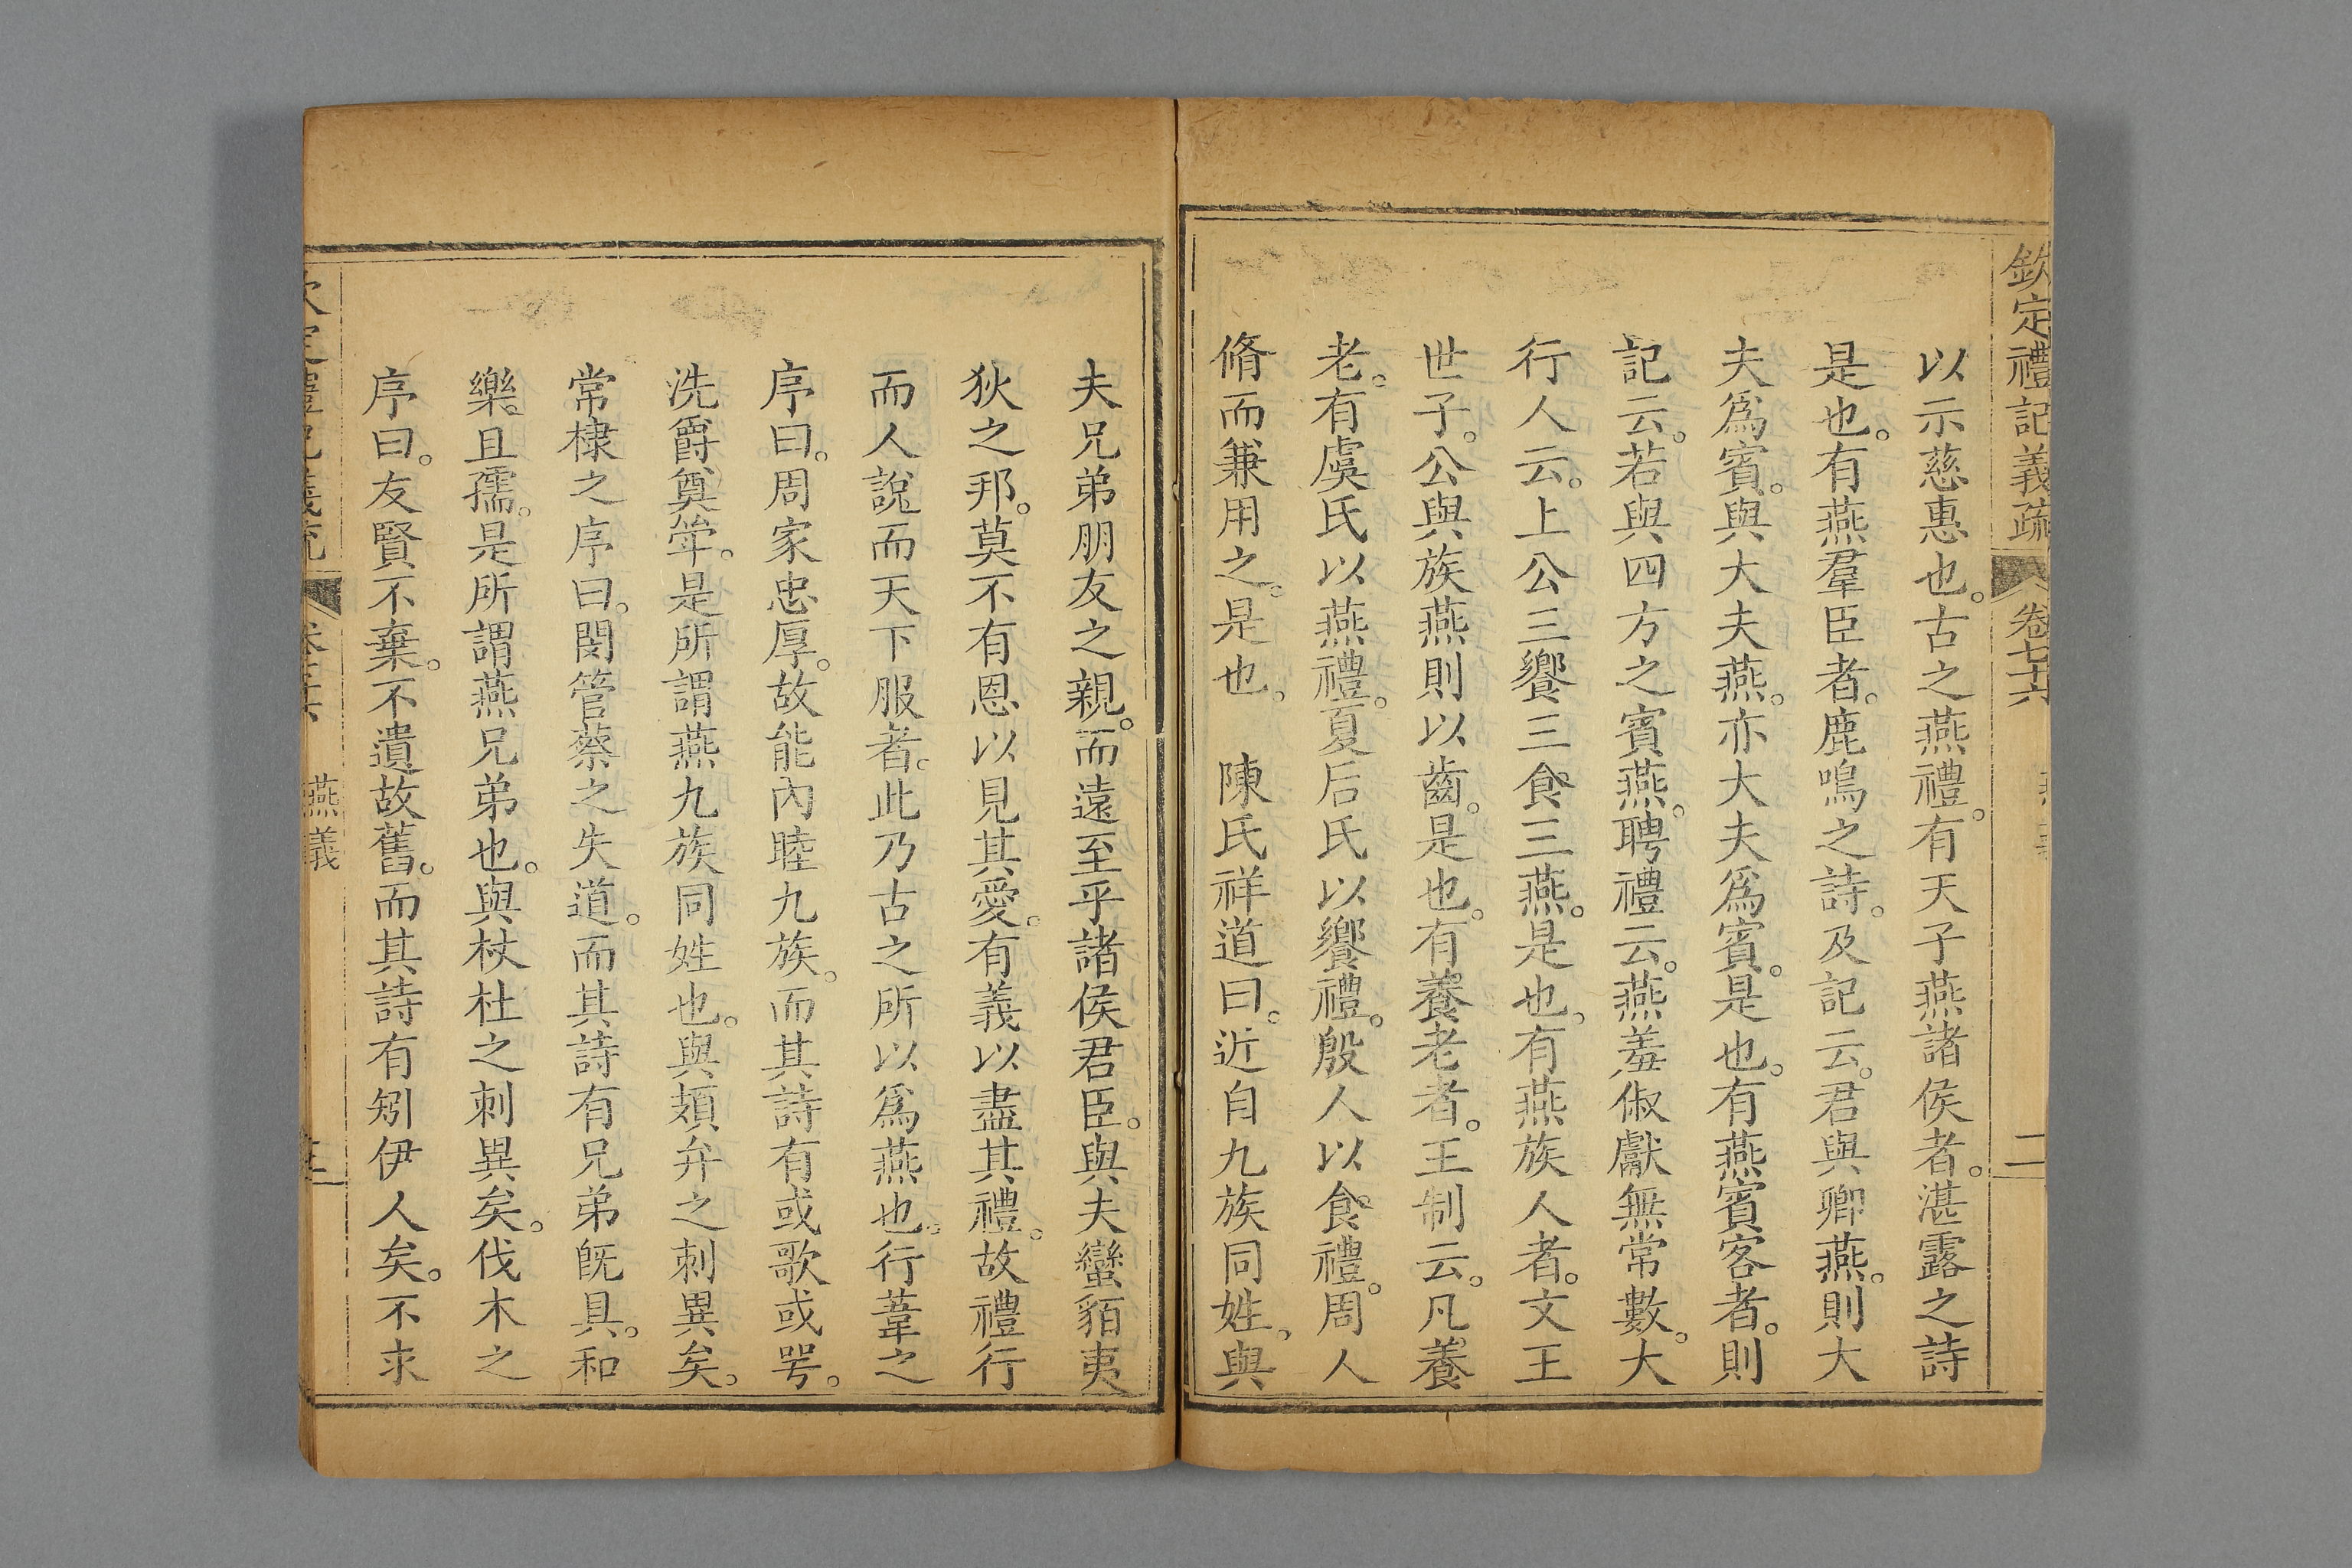 欽定禮記義疏 卷七十六 二
以示慈惠也。古之燕禮。有天子燕諸侯者。湛露之詩
是也。有燕羣臣者。鹿鳴之詩。及記云。君與卿燕。則大
夫爲賓。與大夫燕。亦大夫爲賓。是也。有燕賓客者。則
記云。若與四方之賓燕。聘禮云。燕羞俶獻無常數。大
行人云。上公三饗三食三燕。是也。有燕族人者。文王
世子。公與族燕則以齒。是也。有養老者。王制云。凡養
老。有虞氏以燕禮。夏后氏以饗禮。殷人以食禮。周人
脩而兼用之。是也。 陳氏祥道曰。近自九族同姓。與
夫兄弟朋友之親。而遠至乎諸侯君臣。與夫蠻貊夷
狄之邦。莫不有恩以見其愛。有義以盡其禮。故禮行
而人說而天下服者。此乃古之所以爲燕也。行葦之
序曰。周家忠厚。故能內睦九族。而其詩有或歌或咢。
洗爵奠斝。是所謂燕九族同姓也。與頍弁之刺異矣。
常棣之序曰。閔管蔡之失道。而其詩有兄弟旣具。和
樂且孺。是所謂燕兄弟也。與杕杜之刺異矣。伐木之
序曰。友賢不棄。不遺故舊。而其詩有矧伊人矣。不求
燕義